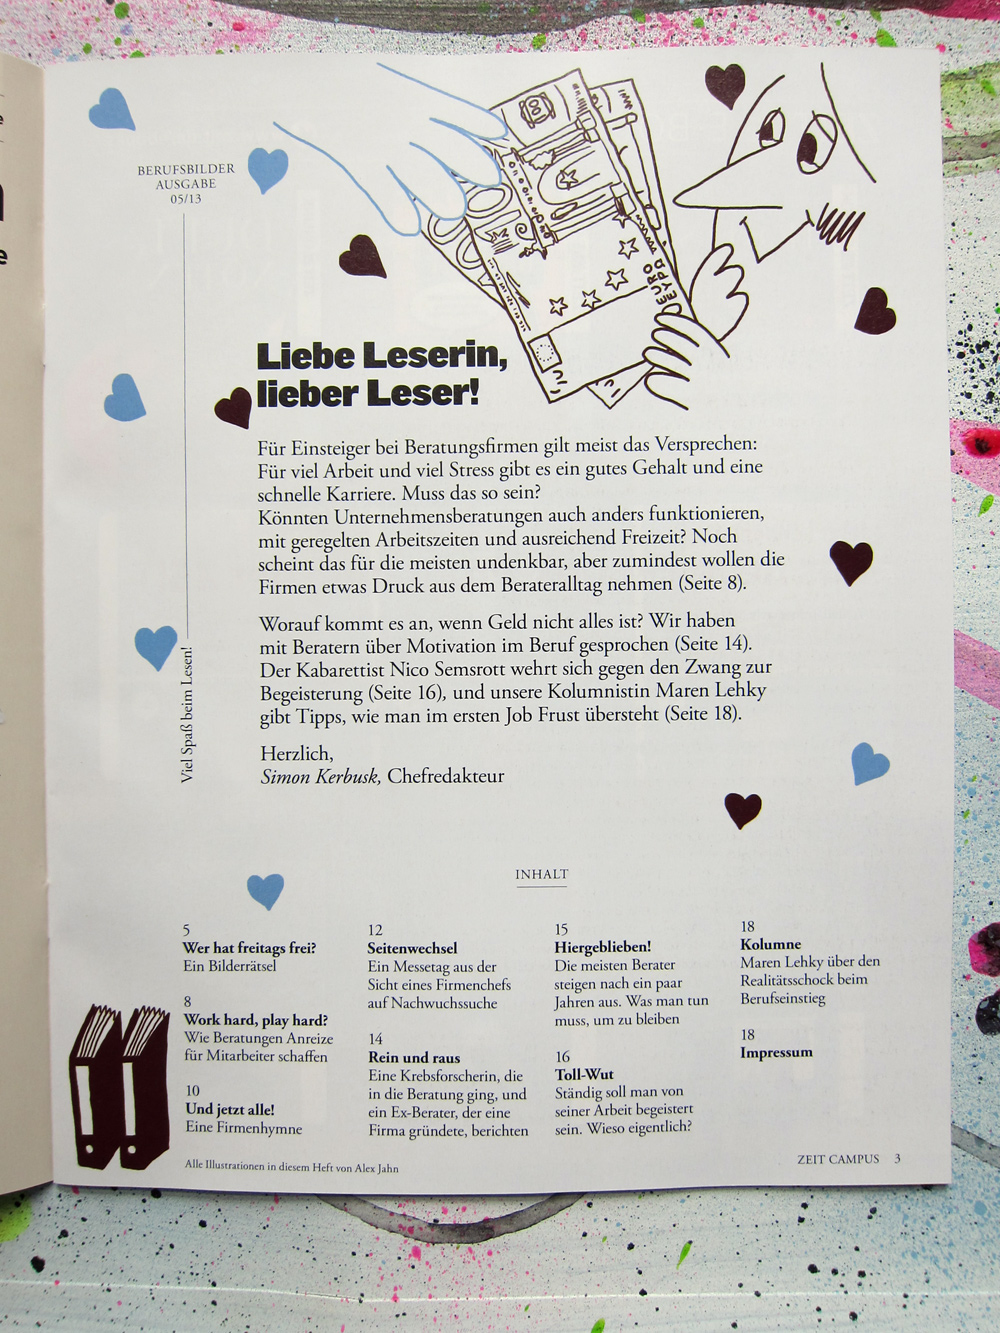 BERUFSBILDER
AUSGABE
05/13
EURO
ΕΥΡΩ
Liebe Leserin,
lieber Leser!
Für Einsteiger bei Beratungsfirmen gilt meist das Versprechen:
Für viel Arbeit und viel Stress gibt es ein gutes Gehalt und eine
schnelle Karriere. Muss das so sein?
Könnten Unternehmensberatungen auch anders funktionieren,
mit geregelten Arbeitszeiten und ausreichend Freizeit? Noch
scheint das für die meisten undenkbar, aber zumindest wollen die
Firmen etwas Druck aus dem Berateralltag nehmen (Seite 8).
Worauf kommt es an, wenn Geld nicht alles ist? Wir haben
mit Beratern über Motivation im Beruf gesprochen (Seite 14).
Der Kabarettist Nico Semsrott wehrt sich gegen den Zwang zur
Begeisterung (Seite 16), und unsere Kolumnistin Maren Lehky
gibt Tipps, wie man im ersten Job Frust übersteht (Seite 18).
Herzlich,
Simon Kerbusk, Chefredakteur
Viel Spaß beim Lesen!
INHALT
5
Wer hat freitags frei?
Ein Bilderrätsel
8
Work hard, play hard?
Wie Beratungen Anreize
für Mitarbeiter schaffen
10
Und jetzt alle!
Eine Firmenhymne
12
Seitenwechsel
Ein Messetag aus der
Sicht eines Firmenchefs
auf Nachwuchssuche
14
Rein und raus
Eine Krebsforscherin, die
in die Beratung ging, und
ein Ex-Berater, der eine
Firma gründete, berichten
15
Hiergeblieben!
Die meisten Berater
steigen nach ein paar
Jahren aus. Was man tun
muss, um zu bleiben
16
Toll-Wut
Ständig soll man von
seiner Arbeit begeistert
sein. Wieso eigentlich?
18
Kolumne
Maren Lehky über den
Realitätsschock beim
Berufseinstieg
18
Impressum
Alle Illustrationen in diesem Heft von Alex Jahn
ZEIT CAMPUS 3